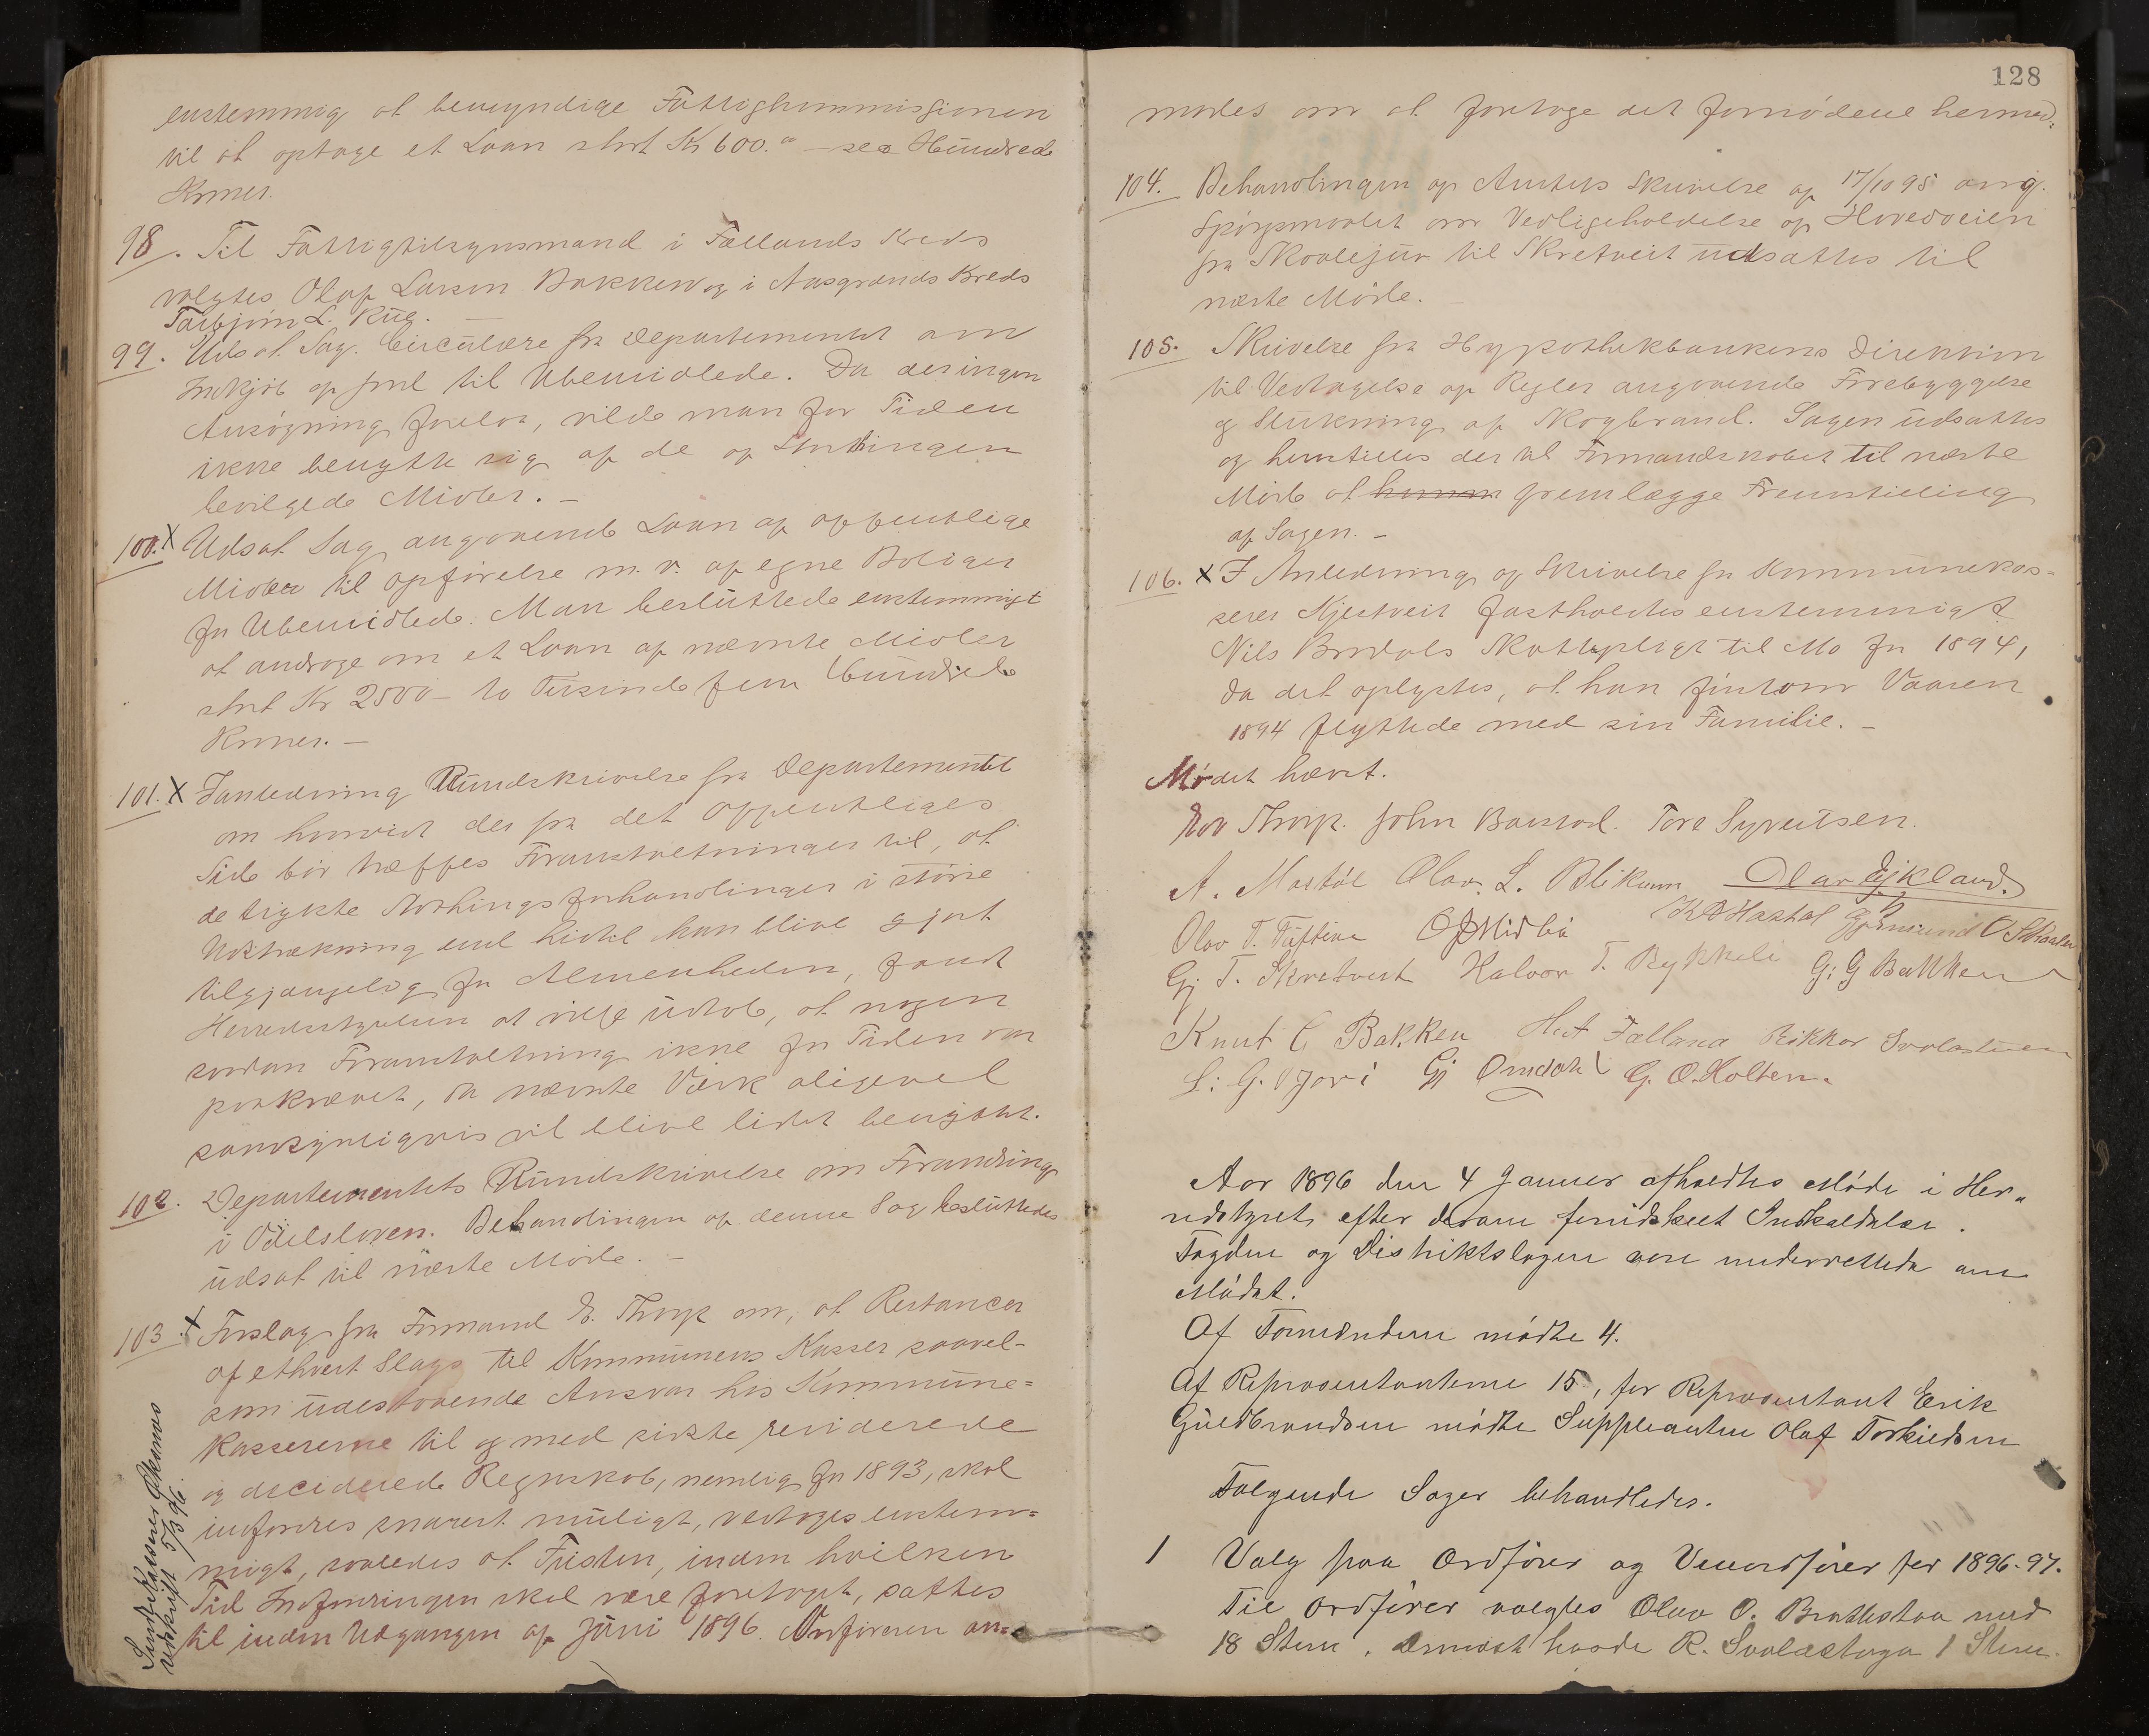 enstemmig at bemyndige Fattigkommissionen
til at optage et Laan stort Kr 600.00 – sex Hundrede
Kroner.
98. Til Fattigtilsynsmand i Fællands Kreds
valgtes Olaf Larsen Bakken og i Aasgrænds Kreds
Torbjørn L. Rue.
99. Uds at. Sag. Circulære fra Departementet om
Indkjøb af Jord til Ubemidlede. Da der ingen
Ansøgning forelaa, vilde man for Tiden
ikke benytte sig af de af Storthinget
bevilgede Midler. –
100. X Udsat Sag angaaende Laan af offentlige
Midler til Opførelse m. v. af egne Boliger
for Ubemidlede. Man besluttede enstemmigt
at andrage om et Laan af nævnte Midler
stort Kr 2500 – to Tusinde fem Hundrede
Kroner. –
101. X I anledning Rundskrivelse fra Departementet
om hvorvidt der fra det Offentliges
Side bør træffes Foranstaltninger til, at
de trykte Storthingsforhandlinger i større
Udstrækning end hidtil kan blive gjort
tilgjængelig for Almenheden, fandt
Herredsstyrelsen at ville udtale, at nogen
saadan Foranstaltning ikke for Tiden var
paakrævet, da nævnte Værk aligevel
sandsynligvis vil blive lidet benyttet.
102. Departementets Rundskrivelse om Forandring
i Odelsloven. Behandlingen af denne Sag besluttedes
udsat til næste Møde. –
103. X Forslag fra Formand E. Thorp om, at Restancer
af ethvert Slags til Kommunens Kasser saavel-
som udestaaende Ansvar hos Kommune-
kassererne til og med sidste reviderede
og deciderede Regnskab, nemlig for 1893, skal
indfordres snarest muligt, vedtoges enstem-
migt, saaledes at Fristen, inden hvilken
Tid Indfordringen skal være foretaget, sattes
til inden Udgangen af Juni 1896. Ordføreren an-
128
modes om at foretage det fornødene hermed.
104. Behandlingen af Amtets Skrivelse af 17/10 95 ang.
Spørgsmaalet om Vedligeholdelse af Hovedveien
fra Skaalejuv til Skretveit udsattes til
næste Møde.
105. Skrivelse fra Hypothekbankens Direktion
til Vedtagelse af Regler angaaende Forebyggelse
og Slukning af Skogbrand. Sagen udsattes
og henstilles der til Formandskabet til næste
Møde at fremlægge Fremstilling
af Sagen. –
106. X I Anledning af Skrivelse fra Kommunekas-
serer Kjestveit fastholdtes enstemmigt
Nils Brodals Skattepligt til Mo for 1894,
da det oplystes, at han først om Vaaren
1894 flyttede med sin Familie. –
Mødet hævet.
E Thorp. John Barstad. Tore Syvertsen.
A. Mostøl Olav. L. Blikom Olav Eikland.
Olav T. Tuftine O J Midbø K O Hastøl
Gj T. Skretveit Halvor T. Rykkeli G. G Bakken
Knut C Bakken Fælland Rikkar Svalastuen
L: G. Vjori Gj Omdahl G. O. Holten.
Aar 1896 den 4 Januar afholdtes Møde i Her-
redstyret efter derom forudskeet Indkaldelse.
Fogden og Distriktslægen vare underrettede om
Mødet.
Af Formændene mødte 4.
Af Repræsentanterne 15, for Repræsentant Erik
Guldbrandsen mødte Suppleanten Olaf Torkildsen
Følgende Sager behandledes.
1 Valg paa Ordfører og Viceordfører for 1896-97.
Til Ordfører valgtes Olav O. Brattestaa med
18 Stem. Dernæst havde R. Svalastoga 1 Stem.